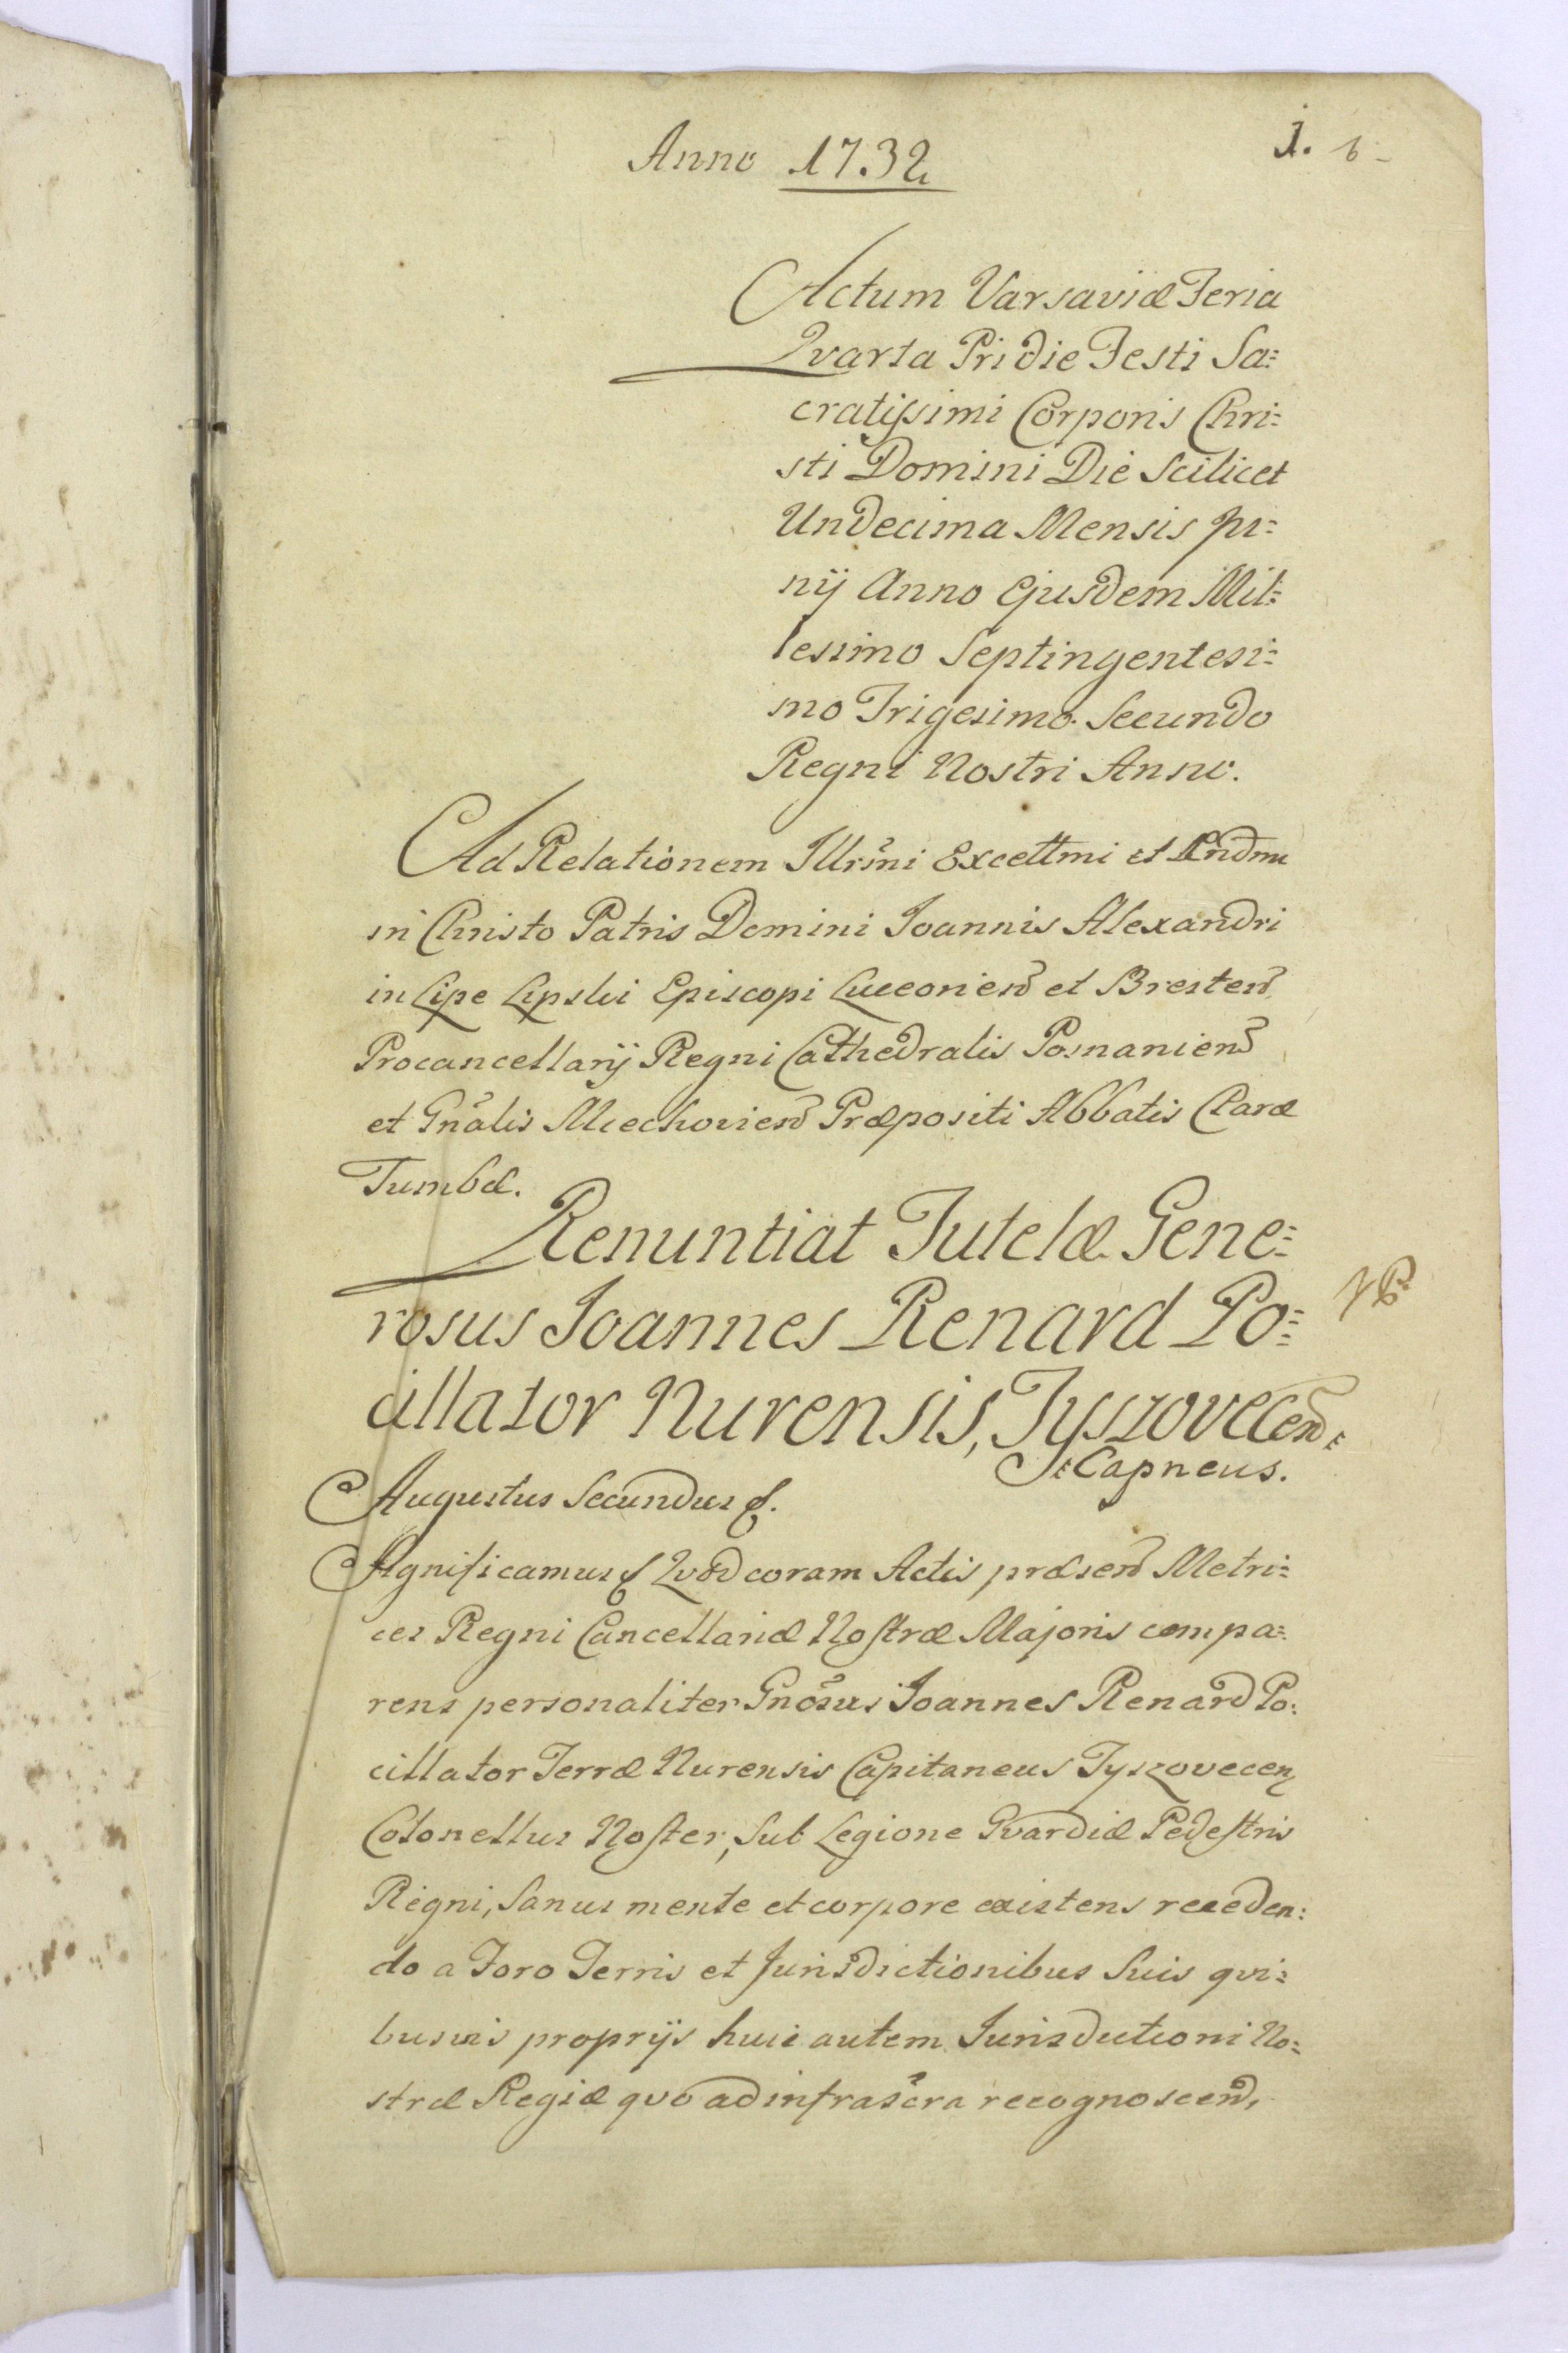 Anno 17.32.
1. 6-
Actum Varsaviæ Feria
Qvarta Pridie Festi Sa=
cratissimi Corporis Chri=
sti Domini Die Scilicet
Undecima Mensis Ju=
nij Anno Ejusdem Mil=
lesimo Septingentesi=
mo Trigesimo Secundo
Regni Nostri Anno.
Ad Relationem Illrsmi Excellmi et Rndmi
in Christo Patris Domini Joannis Alexandri
in Lipe Lipski Episcopi Lucceorien et Bresten
Procancellarij Regni Cathedralis Posnanien
et Gnalis Miechovien Præpositi Abbatis Claræ
Tumbæ.
Renuntiat Tutelæ Gene=
rosus Joannes Renard Po=
cillator Nurensis, Tyszovecen
Capneus.
Augustus Secundus
Significamus Qvod coram Actis præsen Metri=
ces Regni Cancellariæ Nostræ Majoris compa=
rens personaliter Gnosus Joannes Renard Po=
cillator Terræ Nurensis Capitaneus Tyszovecen
Colonellus Noster, Sub Legione Gvardiæ Pedestris
Regni, Sanus mente et corpore existens receden=
do a Foro Terris et Jurisdictionibus Suis qvi=
busvis proprijs huic autem Jurisdictioni No=
stræ Regiæ qvo ad infrascra recognoscen,